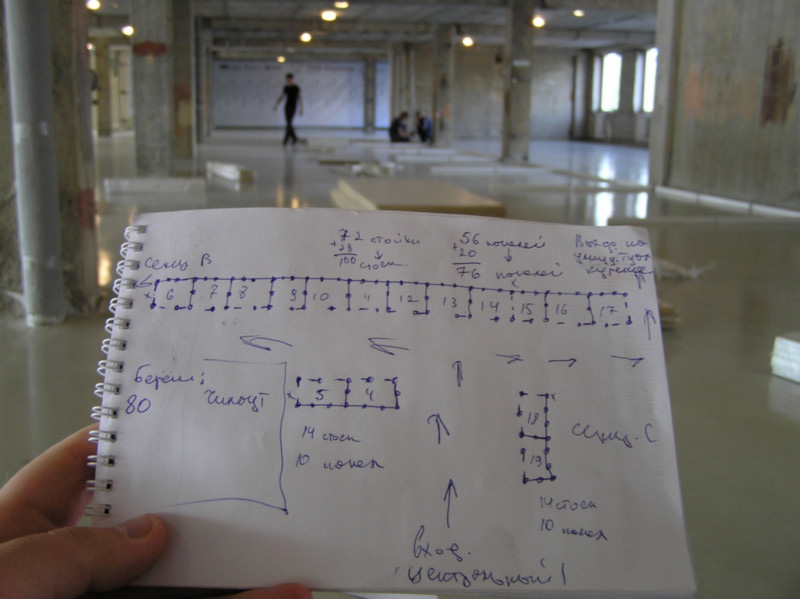 72 стойки
+28
100 стоек
56 панелей
+20
76 панелей
Выход на
секц B
6 7 8 9 10 4 12 13 14 15 16 17
Берем:
80
Чилаут
5 4
14 стоек
10 панел
18
19
секц. C
14 стоек
10 панел
вход.
центральный!